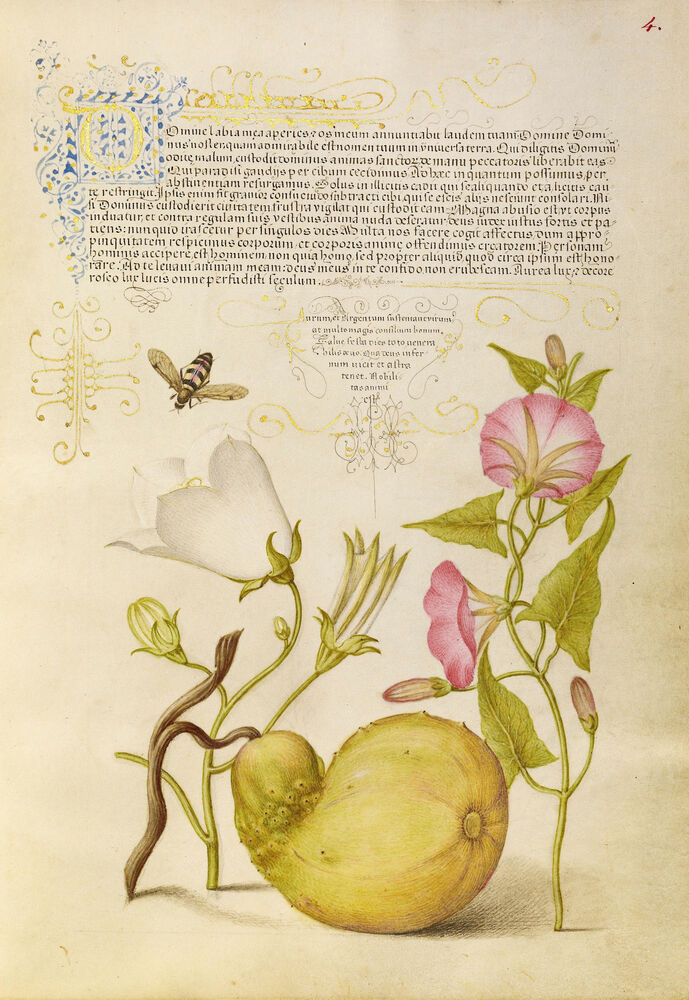 4.
Domine labia mea aperies, & os meum annuntiabit laudem tuam. Domine Domi-
nus noster quam admirabile est nomen tuum in vniversa terra. Qui diligitis Dominũ
odite malum, custodit dominus animas sanctorũ, de manu peccatoris liberabit eas.
Qui paradisi gaudijs per cibum cecidimus, ad hæc in quantum possumus, per
abstinentiam resurgamus. Solus in illicitis cadit qui se aliquando et a licitis cau-
te restringit. Ipsis enim sit gravior consuendo subtracti cibi, qui se escis alijs nesciunt consolari. Ni-
si Dominus custodierit civitatem frustra vigilat qui custodit eam. Magna abusio est vt corpus
induatur, et contra regulam suis vestibus anima nuda deseratur. deus iudex iustus fortis et pa-
tiens: nunquid irascetur per singulos dies. Multa nos facere cogit affectus, dum appro-
pinquitatem respicimus corporum et corporis animę offendimus creatorem. Personam
hominis accipere, est hominem non quia homo, sed propter aliquid, quod circa ipsum est, hono-
rare. Ad te levavi animam meam: deus meus in te confido non erubescam. Aurea lux, & decore
roseo lux lucis omne perfudisti seculum.
Aurum, et Argentum sustentant virum:
at multo magis consilium bonum.
Salve festa dies toto venera
bilis ævo. Qua deus infer
num vicit et astra
tenet. Nobili-
tas animi
est